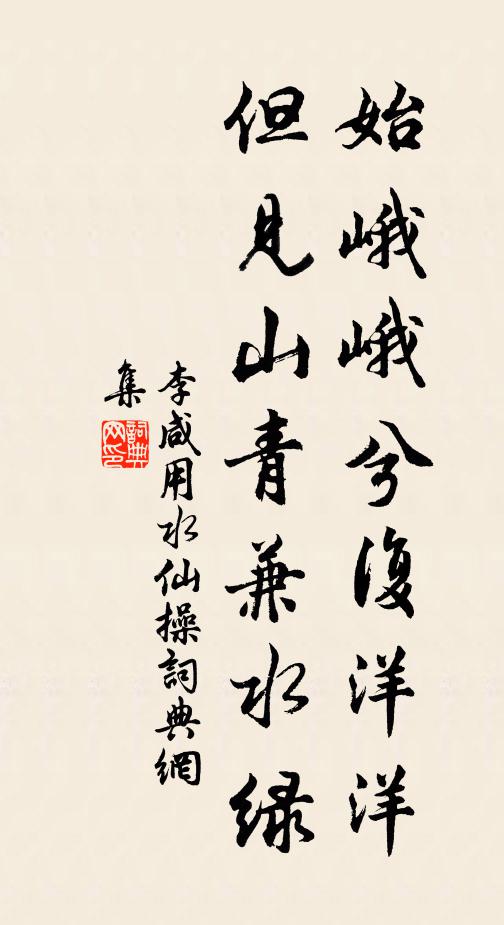 始峨峨兮復洋洋
但見山青兼水緑
李咸用水仙操詞典網
集
詞典
网印